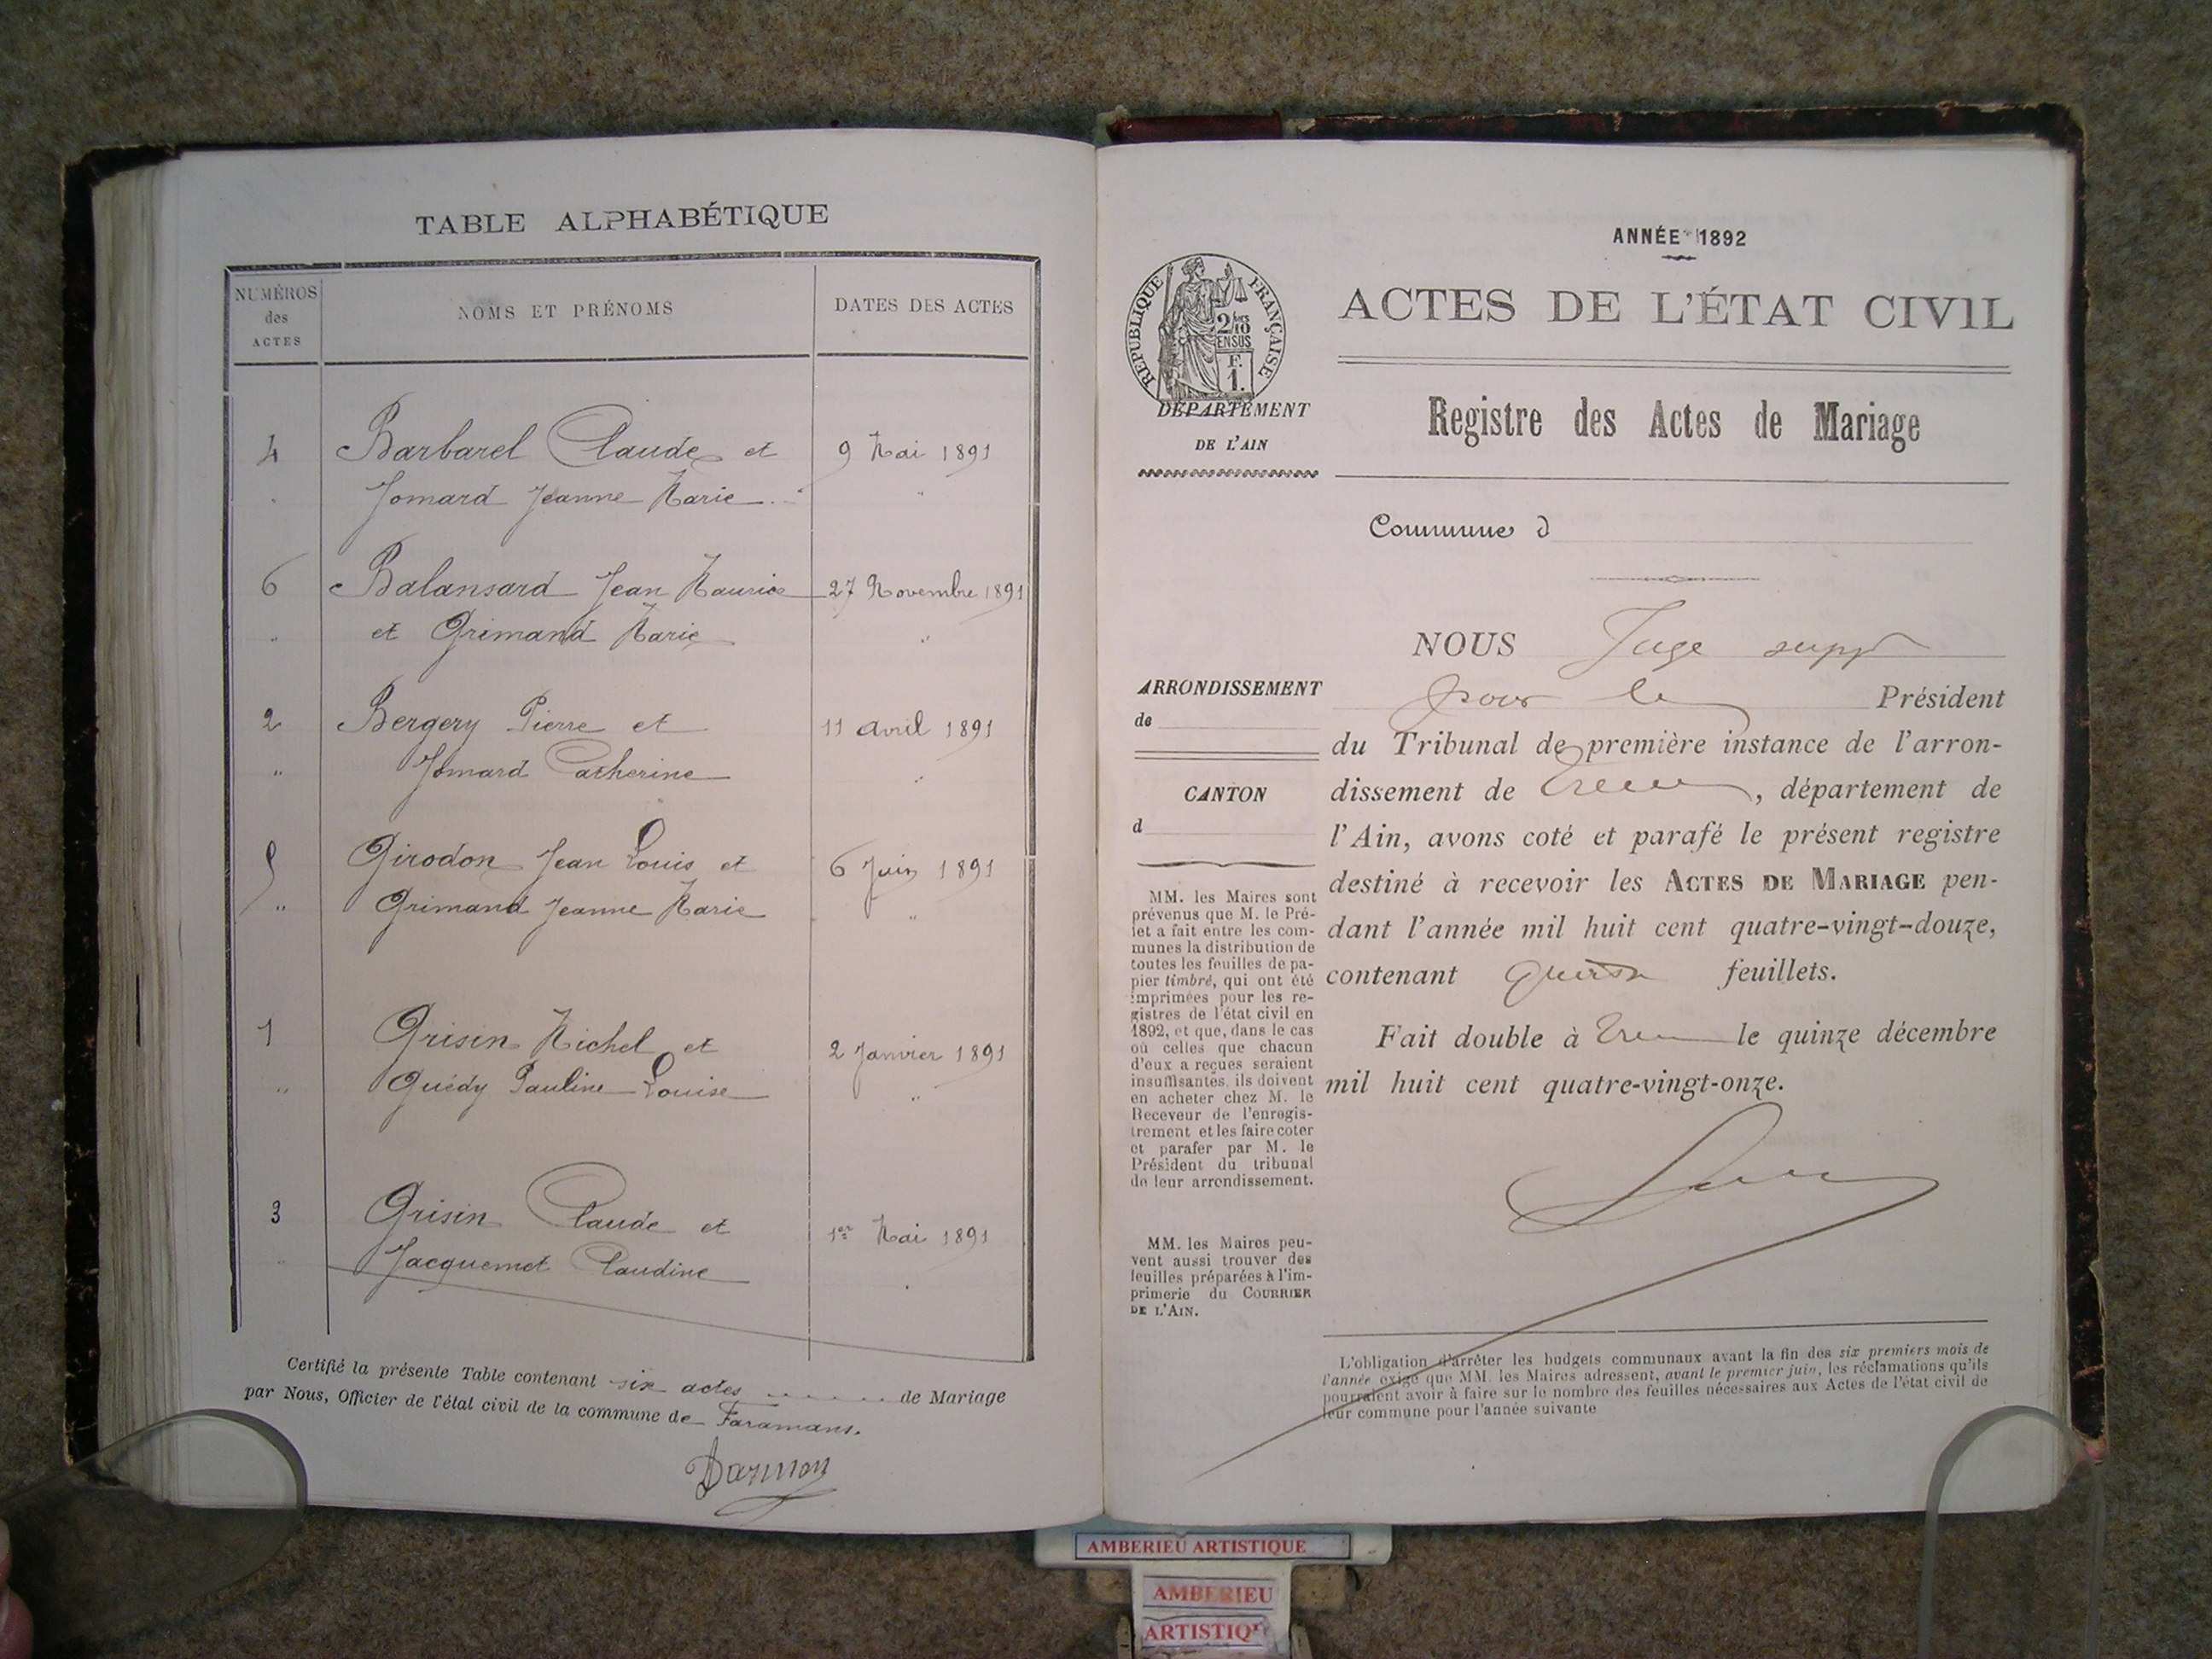 TABLE ALPHABÉTIQUE
NUMÉROS des ACTES
NOMS ET PRÉNOMS
DATES DES ACTES
4 Barbarel Claude et 9 Mai 1891
" Jomard Jeanne Marie "
6 Balansard Jean Maurice 27 Novembre 1891
" et Grimand Marie "
2 Bergery Pierre et 11 avril 1891
" Jomard Catherine "
5 Girodon Jean Louis et 6 Juin 1891
" Grimand Jeanne Marie "
1 Grisin Michel et 2 Janvier 1891
" Guédy Pauline Louise "
3 Grisin Claude et 1er Mai 1891
" Jacquemet Claudine "
Certifié la présente Table contenant six actes de Mariage
par Nous, Officier de l'état civil de la commune de Faramans.
Darmon
ANNÉE 1892
RÉPUBLIQUE FRANÇAISE
2/10 EN SUS
F. 1.
ACTES DE L'ÉTAT CIVIL
DÉPARTEMENT
DE L'AIN
Registre des Actes de Mariage
Commune d
ARRONDISSEMENT
de
CANTON
d
MM. les Maires sont
prévenus que M. le Pré-
fet a fait entre les com-
munes la distribution de
toutes les feuilles de pa-
pier timbré, qui ont été
imprimées pour les re-
gistres de l'état civil en
1892, et que, dans le cas
où celles que chacun
d'eux a reçues seraient
insuffisantes, ils doivent
en acheter chez M. le
Receveur de l'enregis-
trement et les faire coter
et parafer par M. le
Président du tribunal
de leur arrondissement.
MM. les Maires peu-
vent aussi trouver des
feuilles préparées à l'im-
primerie du COURRIER
DE L'AIN.
NOUS Juge supp
pour le Président
du Tribunal de première instance de l'arron-
dissement de , département de
l'Ain, avons coté et parafé le présent registre
destiné à recevoir les ACTES DE MARIAGE pen-
dant l'année mil huit cent quatre-vingt-douze,
contenant feuillets.
Fait double à le quinze décembre
mil huit cent quatre-vingt-onze.
L'obligation d'arrêter les budgets communaux avant la fin des six premiers mois de
l'année exige que MM. les Maires adressent, avant le premier juin, les réclamations qu'ils
pourraient avoir à faire sur le nombre des feuilles nécessaires aux Actes de l'état civil de
leur commune pour l'année suivante
AMBERIEU ARTISTIQUE
AMBERIEU
ARTISTIQU